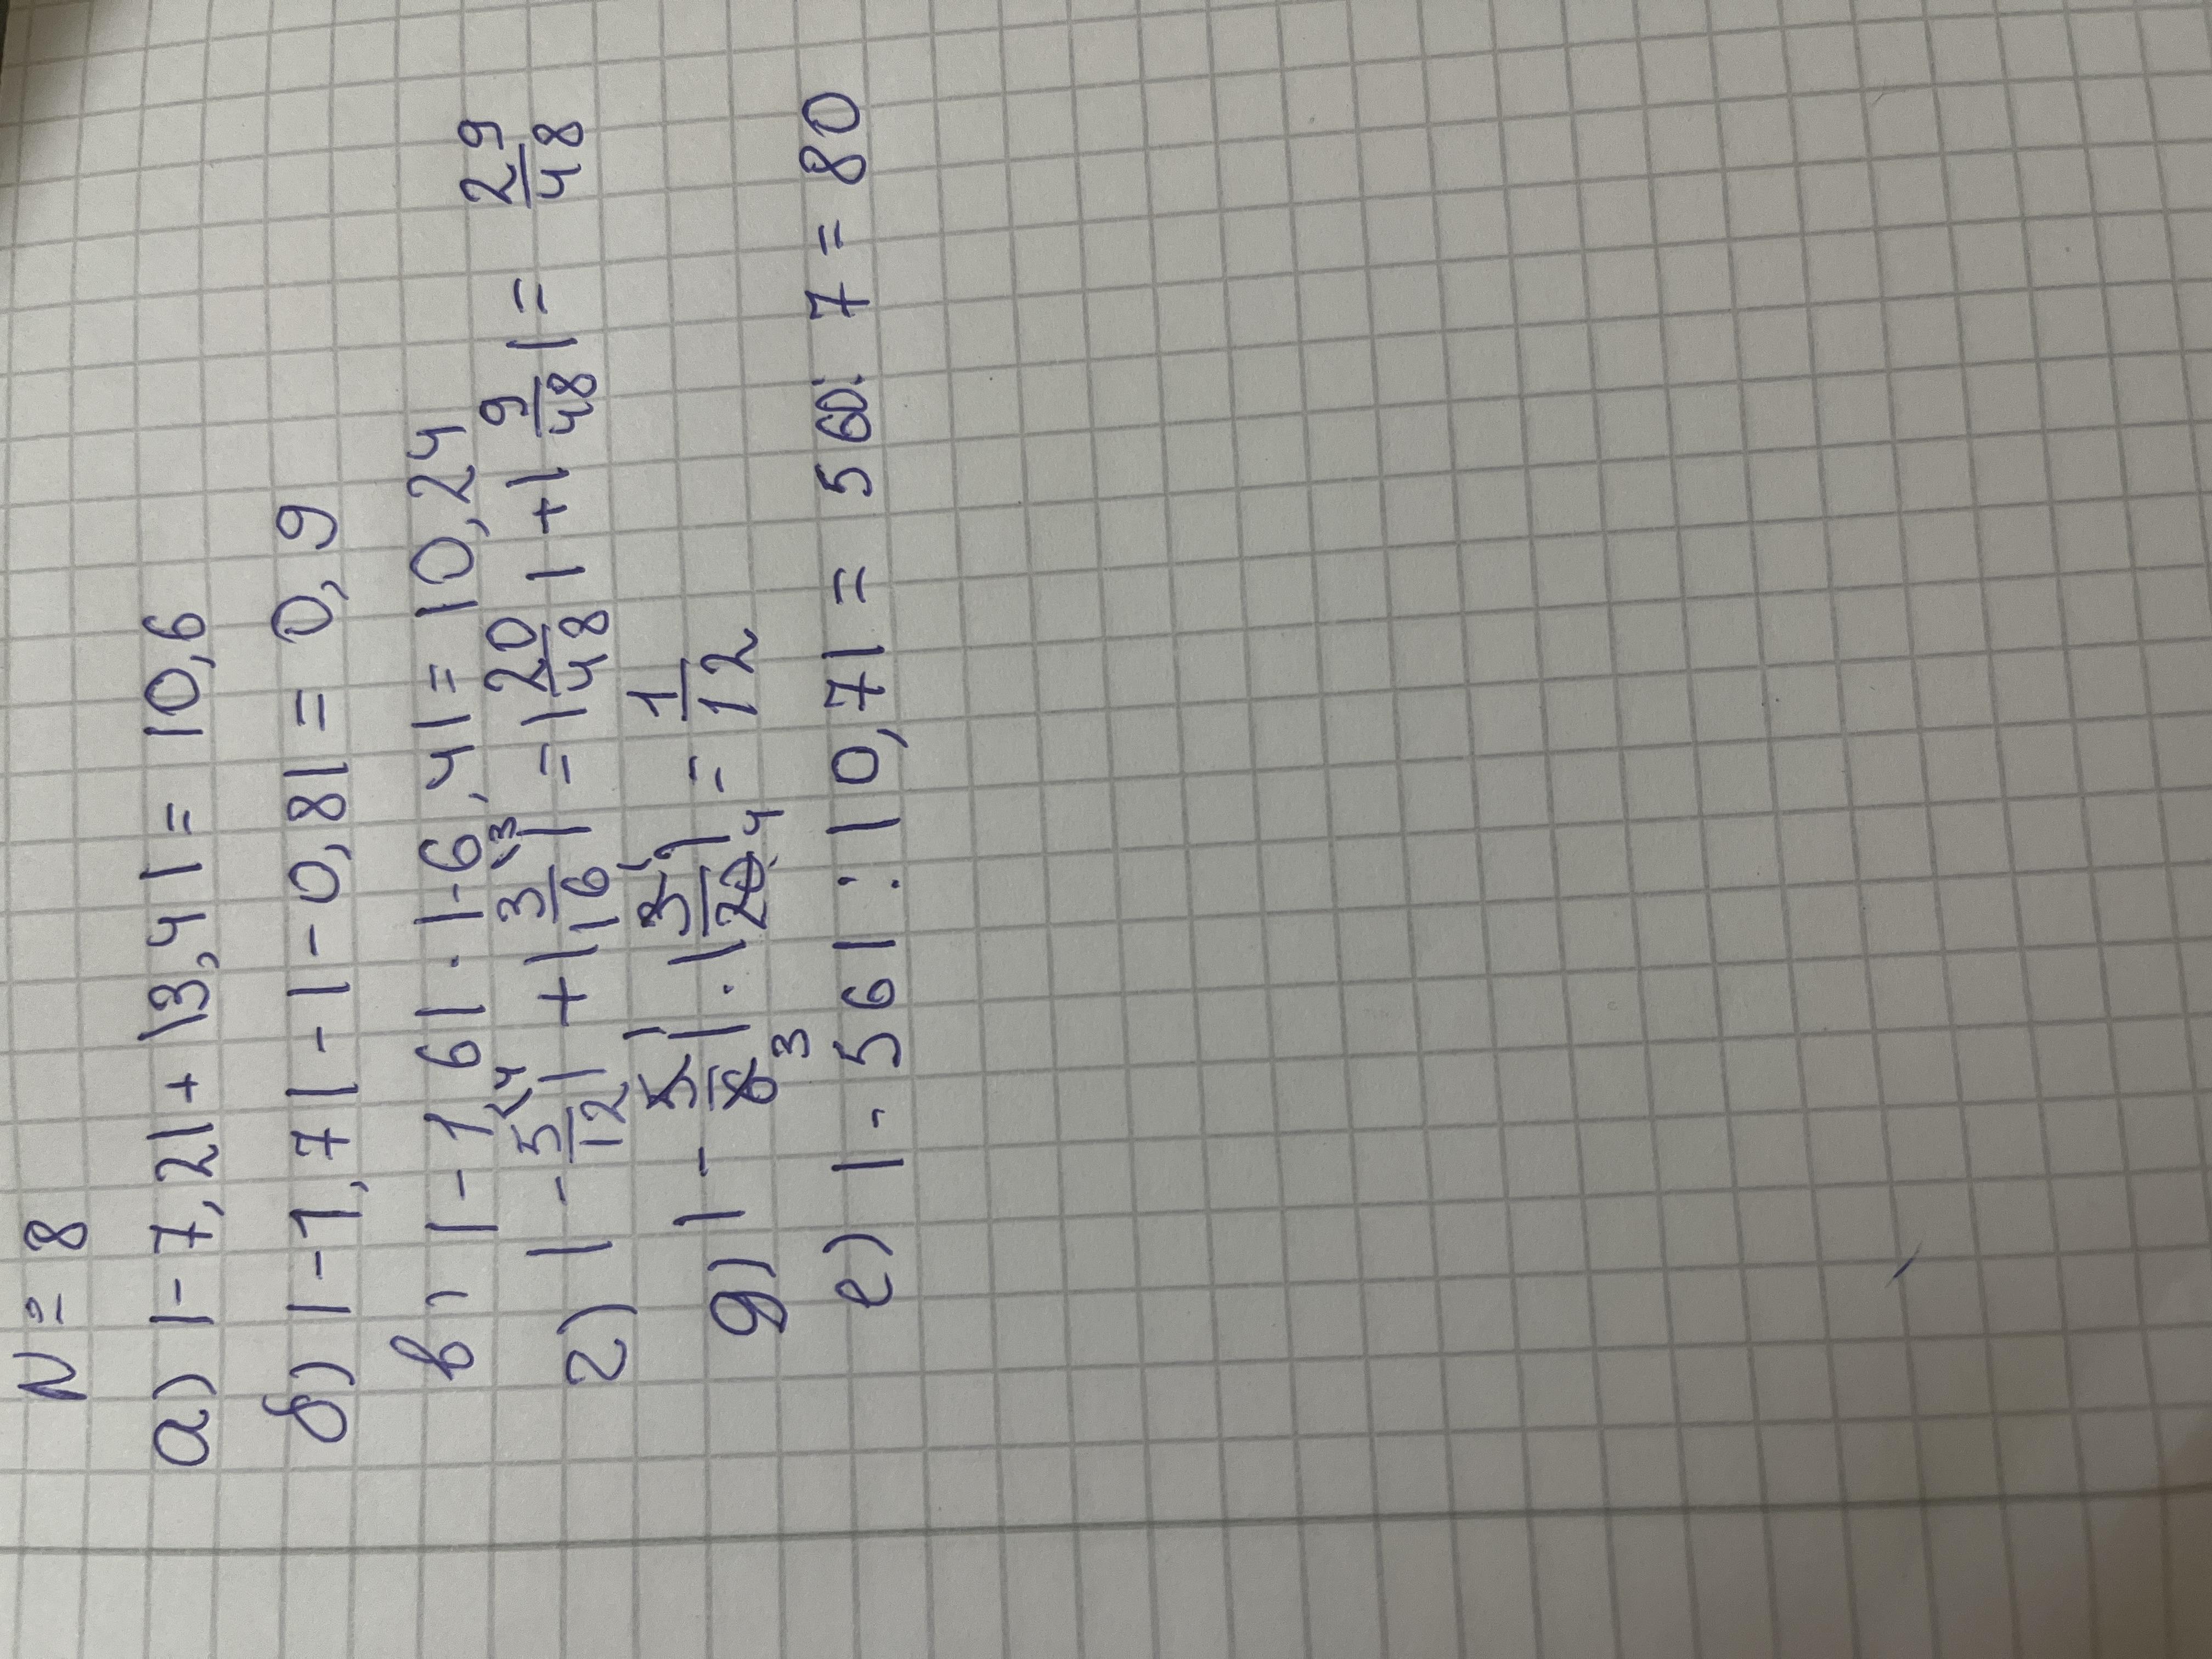 № 8
а) |-7,2|+|3,4|= 10,6
б) |-1,7|-|-0,8|= 0,9
в) |-1 6|·|-6,4|= 10,24
г) |-5/12|⁴ + |3/16|³ = |20/48|+|9/48|= 29/48
д) |-5/6|·|3/20| = 1/12
е) |-56|:|0,7|= 560:7=80